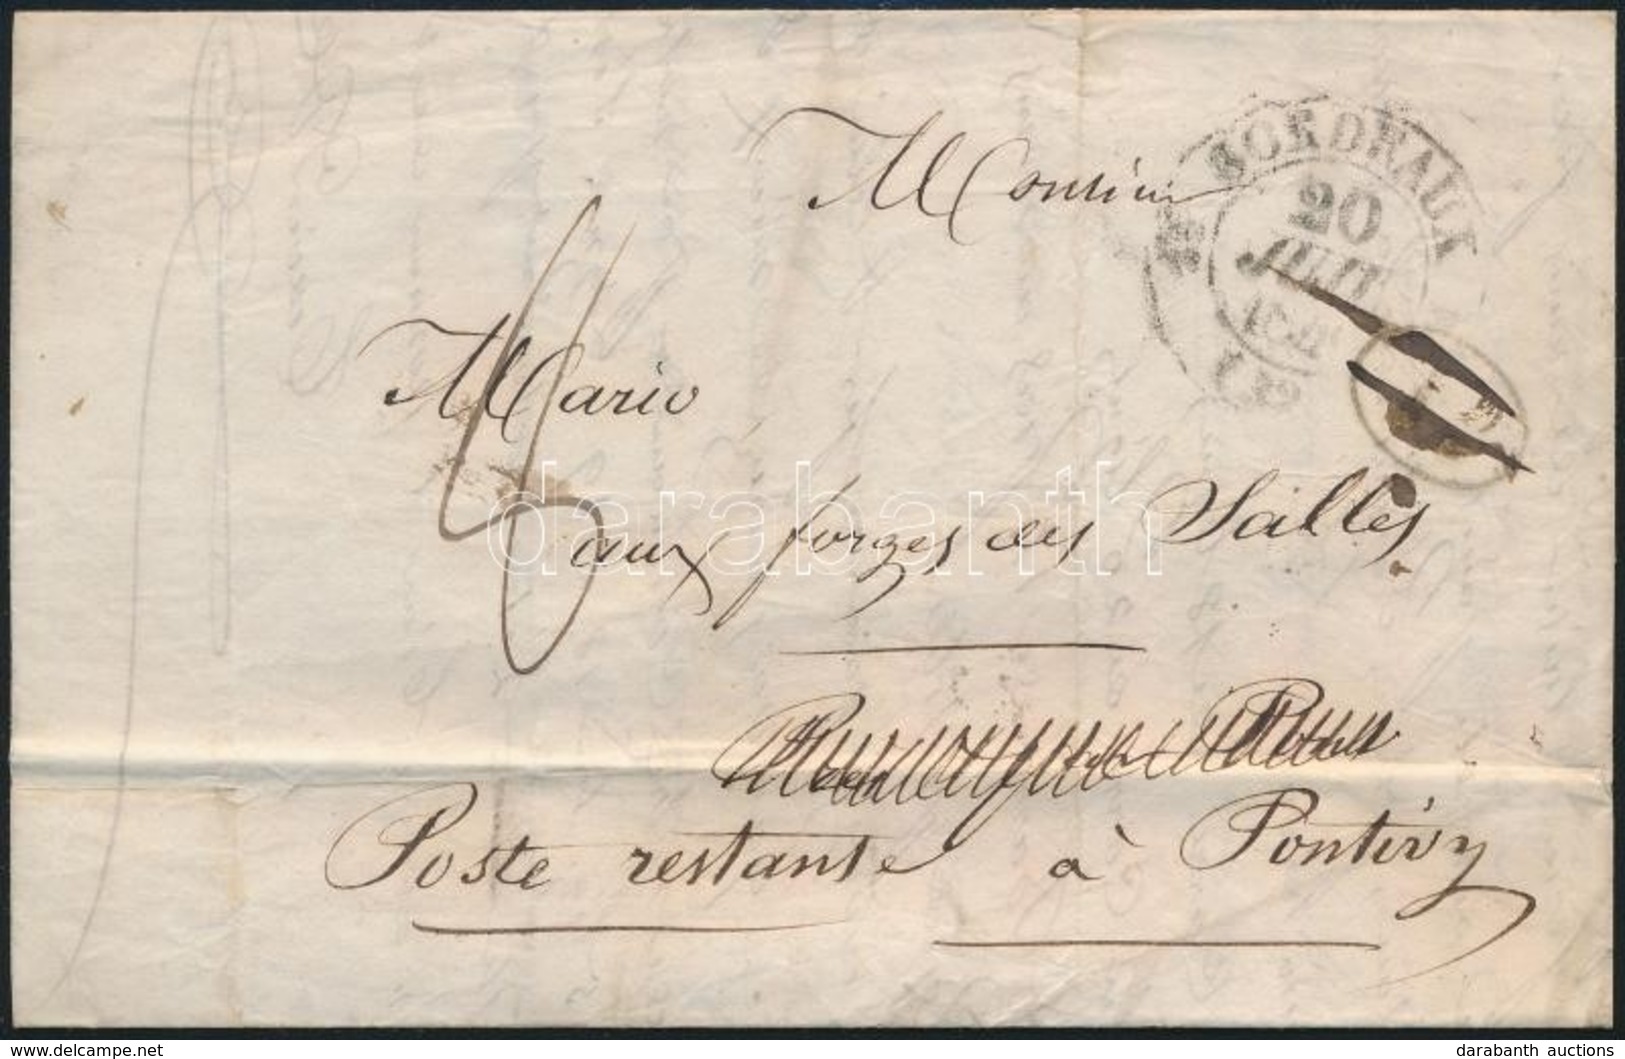 BORDEAUX
20
JUIL
Monsieur
Mario
aux forges des Salles
Poste restante à Pontivy
darabanth
www.delcampe.net
darabanth auctions